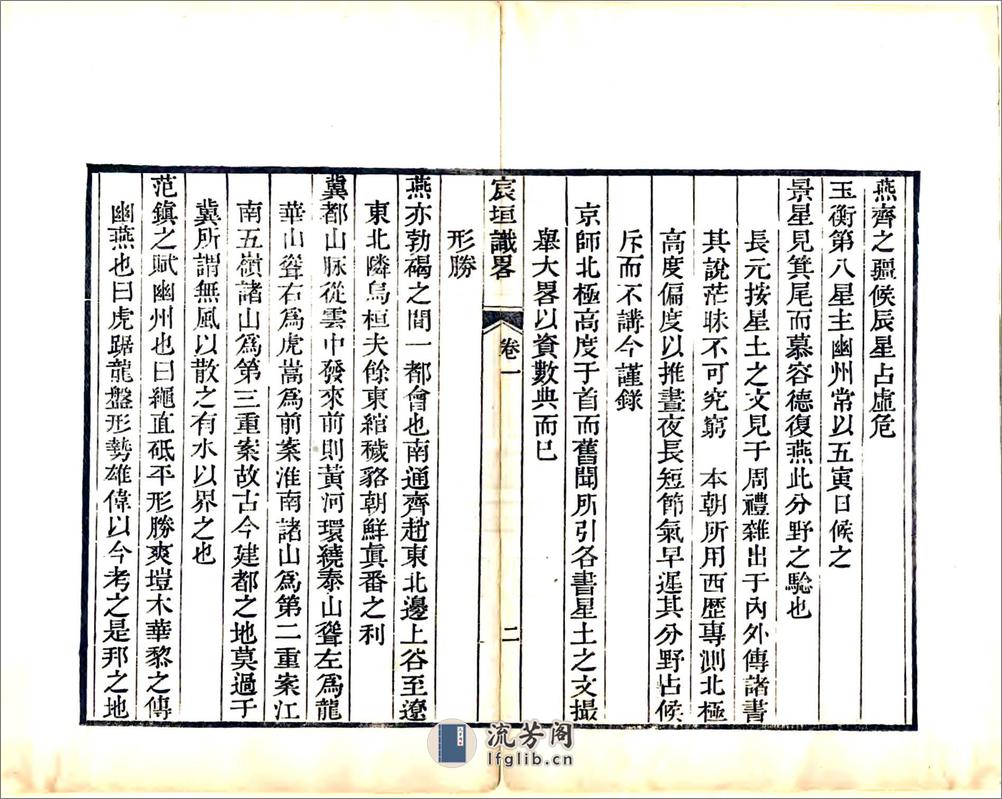 燕齊之疆候辰星占虛危
玉衡第八星主幽州常以五寅日候之
景星見箕尾而慕容德復燕此分野之騐也
長元按星土之文見于周禮雜出于內外傳諸書
其說茫昧不可究窮　本朝所用西歷專測北極
高度偏度以推晝夜長短節氣早遲其分野占候
斥而不講今謹錄
京師北極高度于首而舊聞所引各書星土之文撮
舉大畧以資數典而已
宸垣識畧　卷一　二
形勝
燕亦勃碣之間一都會也南通齊趙東北邊上谷至遼
東北隣烏桓夫餘東綰穢貉朝鮮眞番之利
冀都山脉從雲中發來前則黃河環繞泰山聳左爲龍
華山聳右爲虎嵩爲前案淮南諸山爲第二重案江
南五嶺諸山爲第三重案故古今建都之地莫過于
冀所謂無風以散之有水以界之也
范鎮之賦幽州也曰繩直砥平形勝爽塏木華黎之傳
幽燕也曰虎踞龍盤形勢雄偉以今考之是邦之地
流芳阁
lfglib.cn